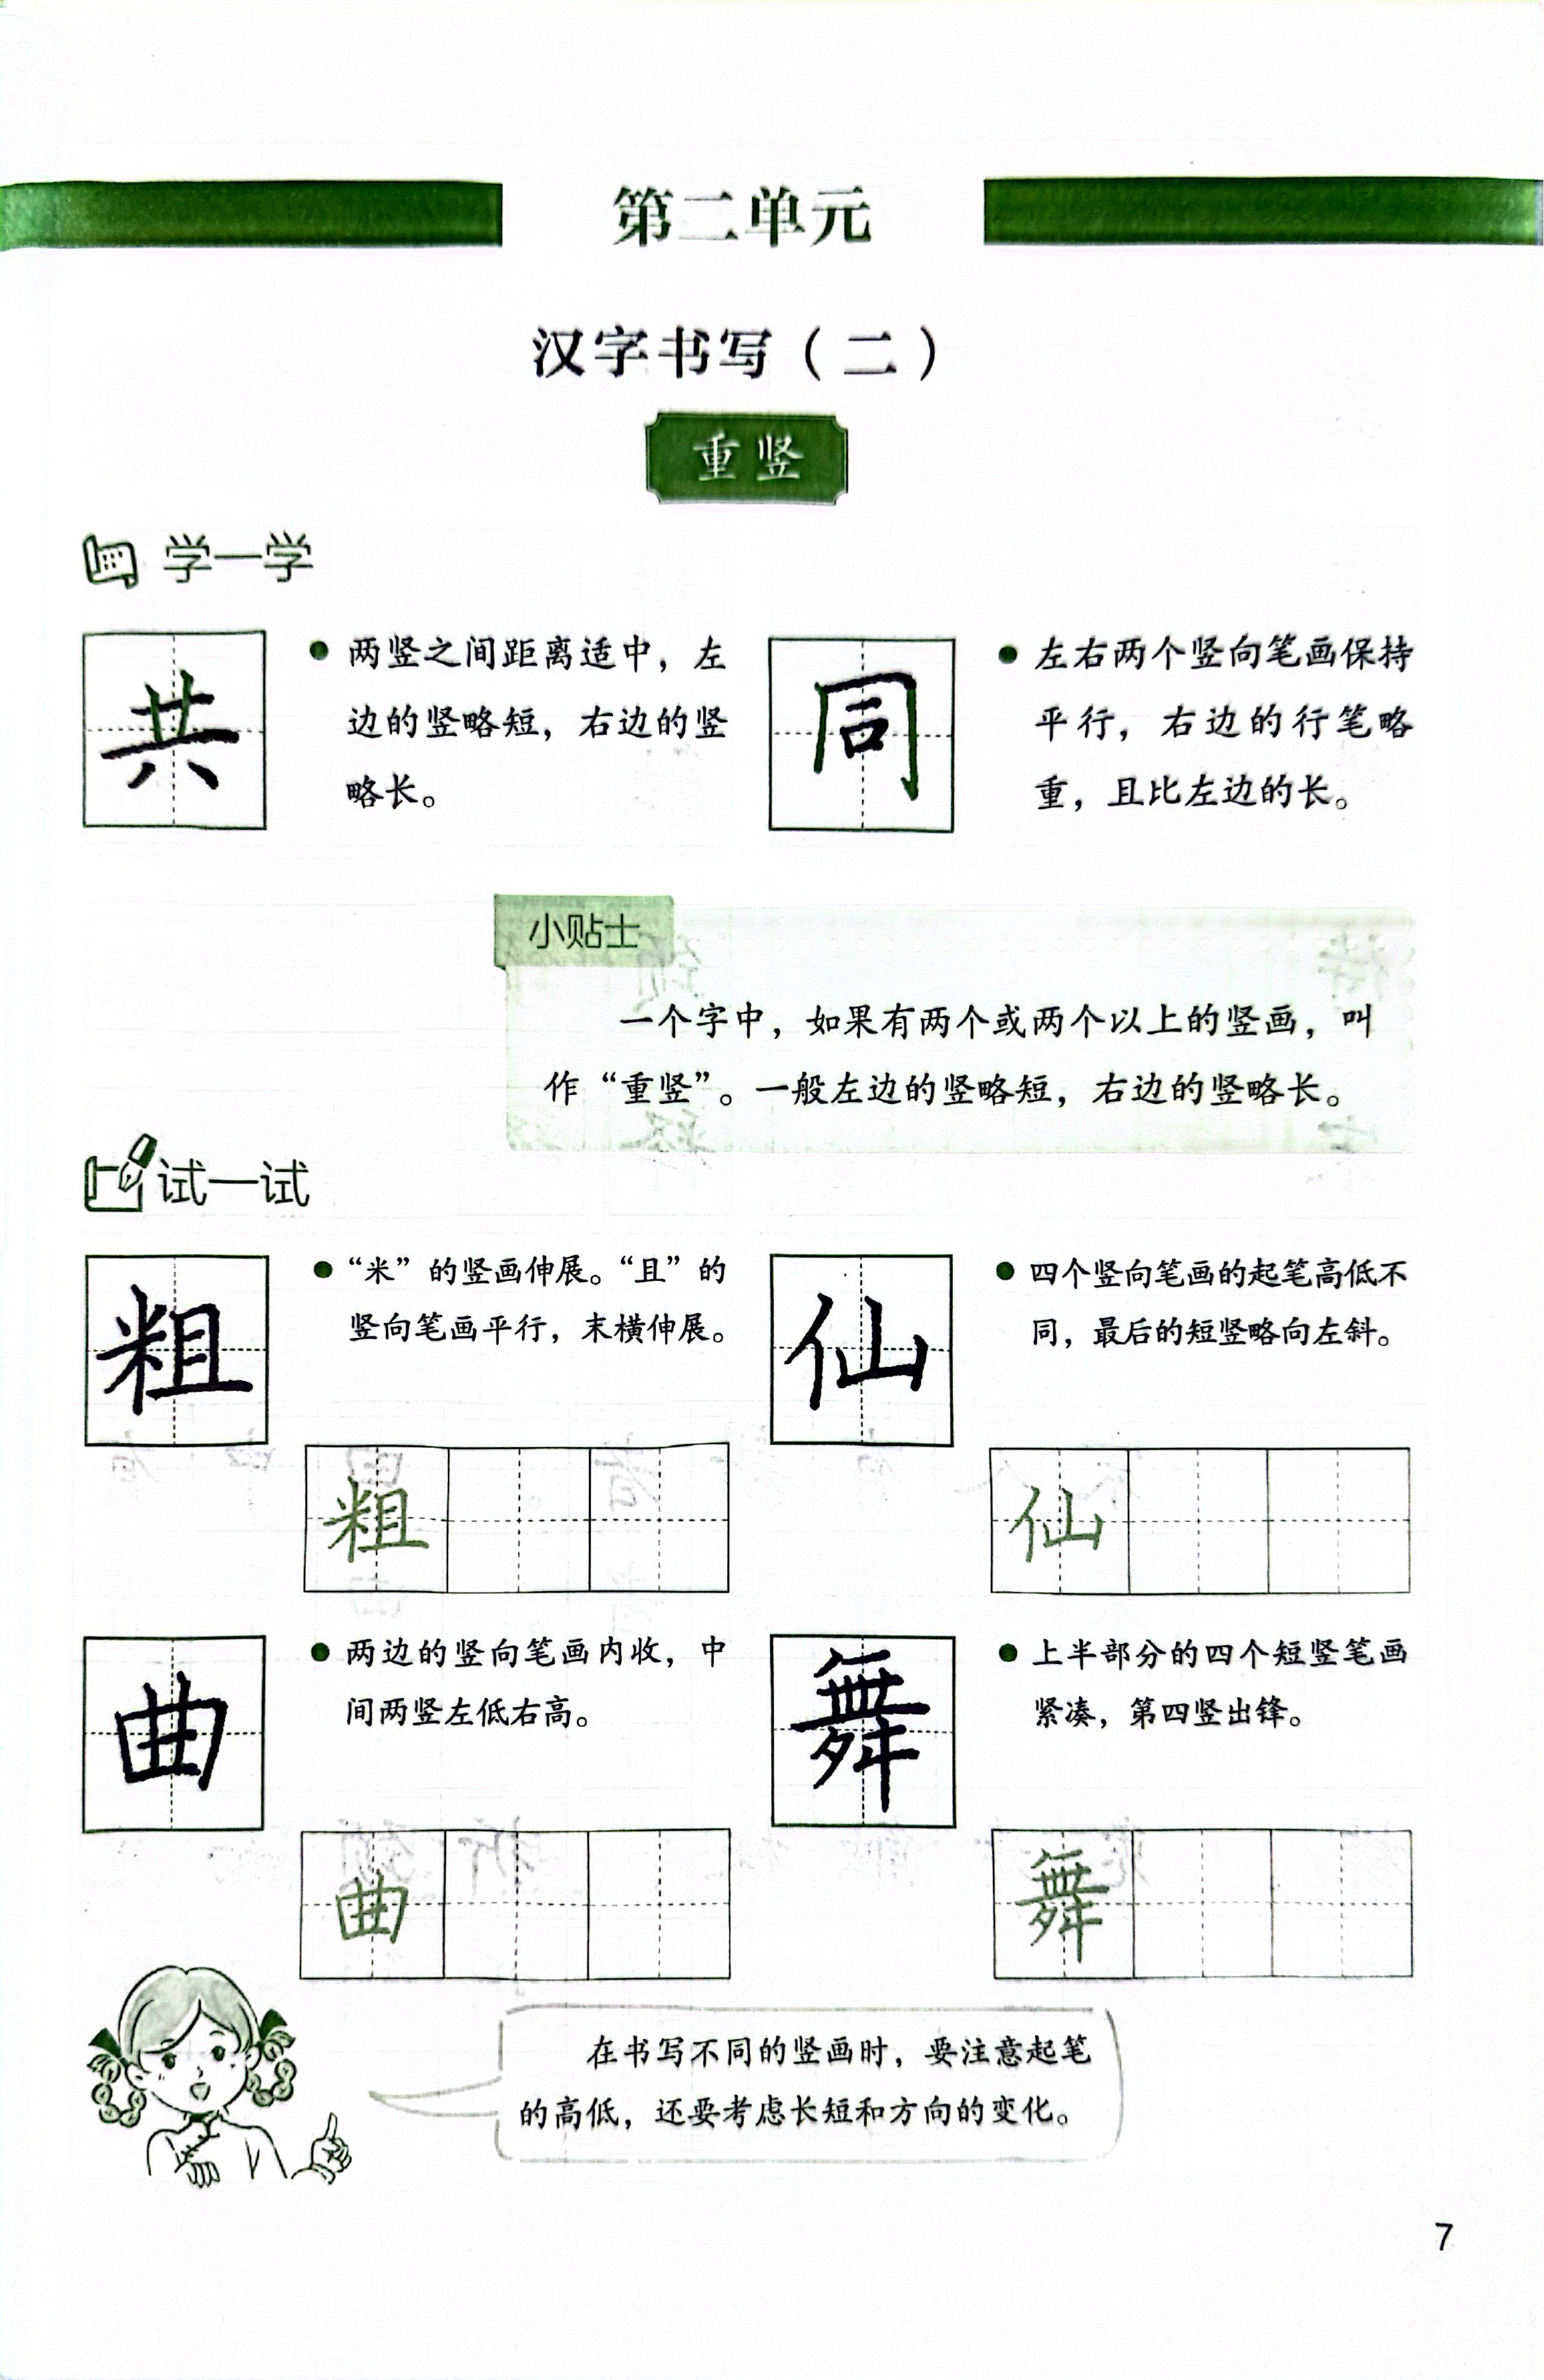 第二单元
汉字书写（二）
重竖
学一学
共
两竖之间距离适中，左
边的竖略短，右边的竖
略长。
同
左右两个竖向笔画保持
平行，右边的行笔略
重，且比左边的长。
小贴士
一个字中，如果有两个或两个以上的竖画，叫
作“重竖”。一般左边的竖略短，右边的竖略长。
试一试
粗
“米”的竖画伸展。“且”的
竖向笔画平行，末横伸展。
粗
仙
四个竖向笔画的起笔高低不
同，最后的短竖略向左斜。
仙
曲
两边的竖向笔画内收，中
间两竖左低右高。
曲
舞
上半部分的四个短竖笔画
紧凑，第四竖出锋。
舞
在书写不同的竖画时，要注意起笔
的高低，还要考虑长短和方向的变化。
7